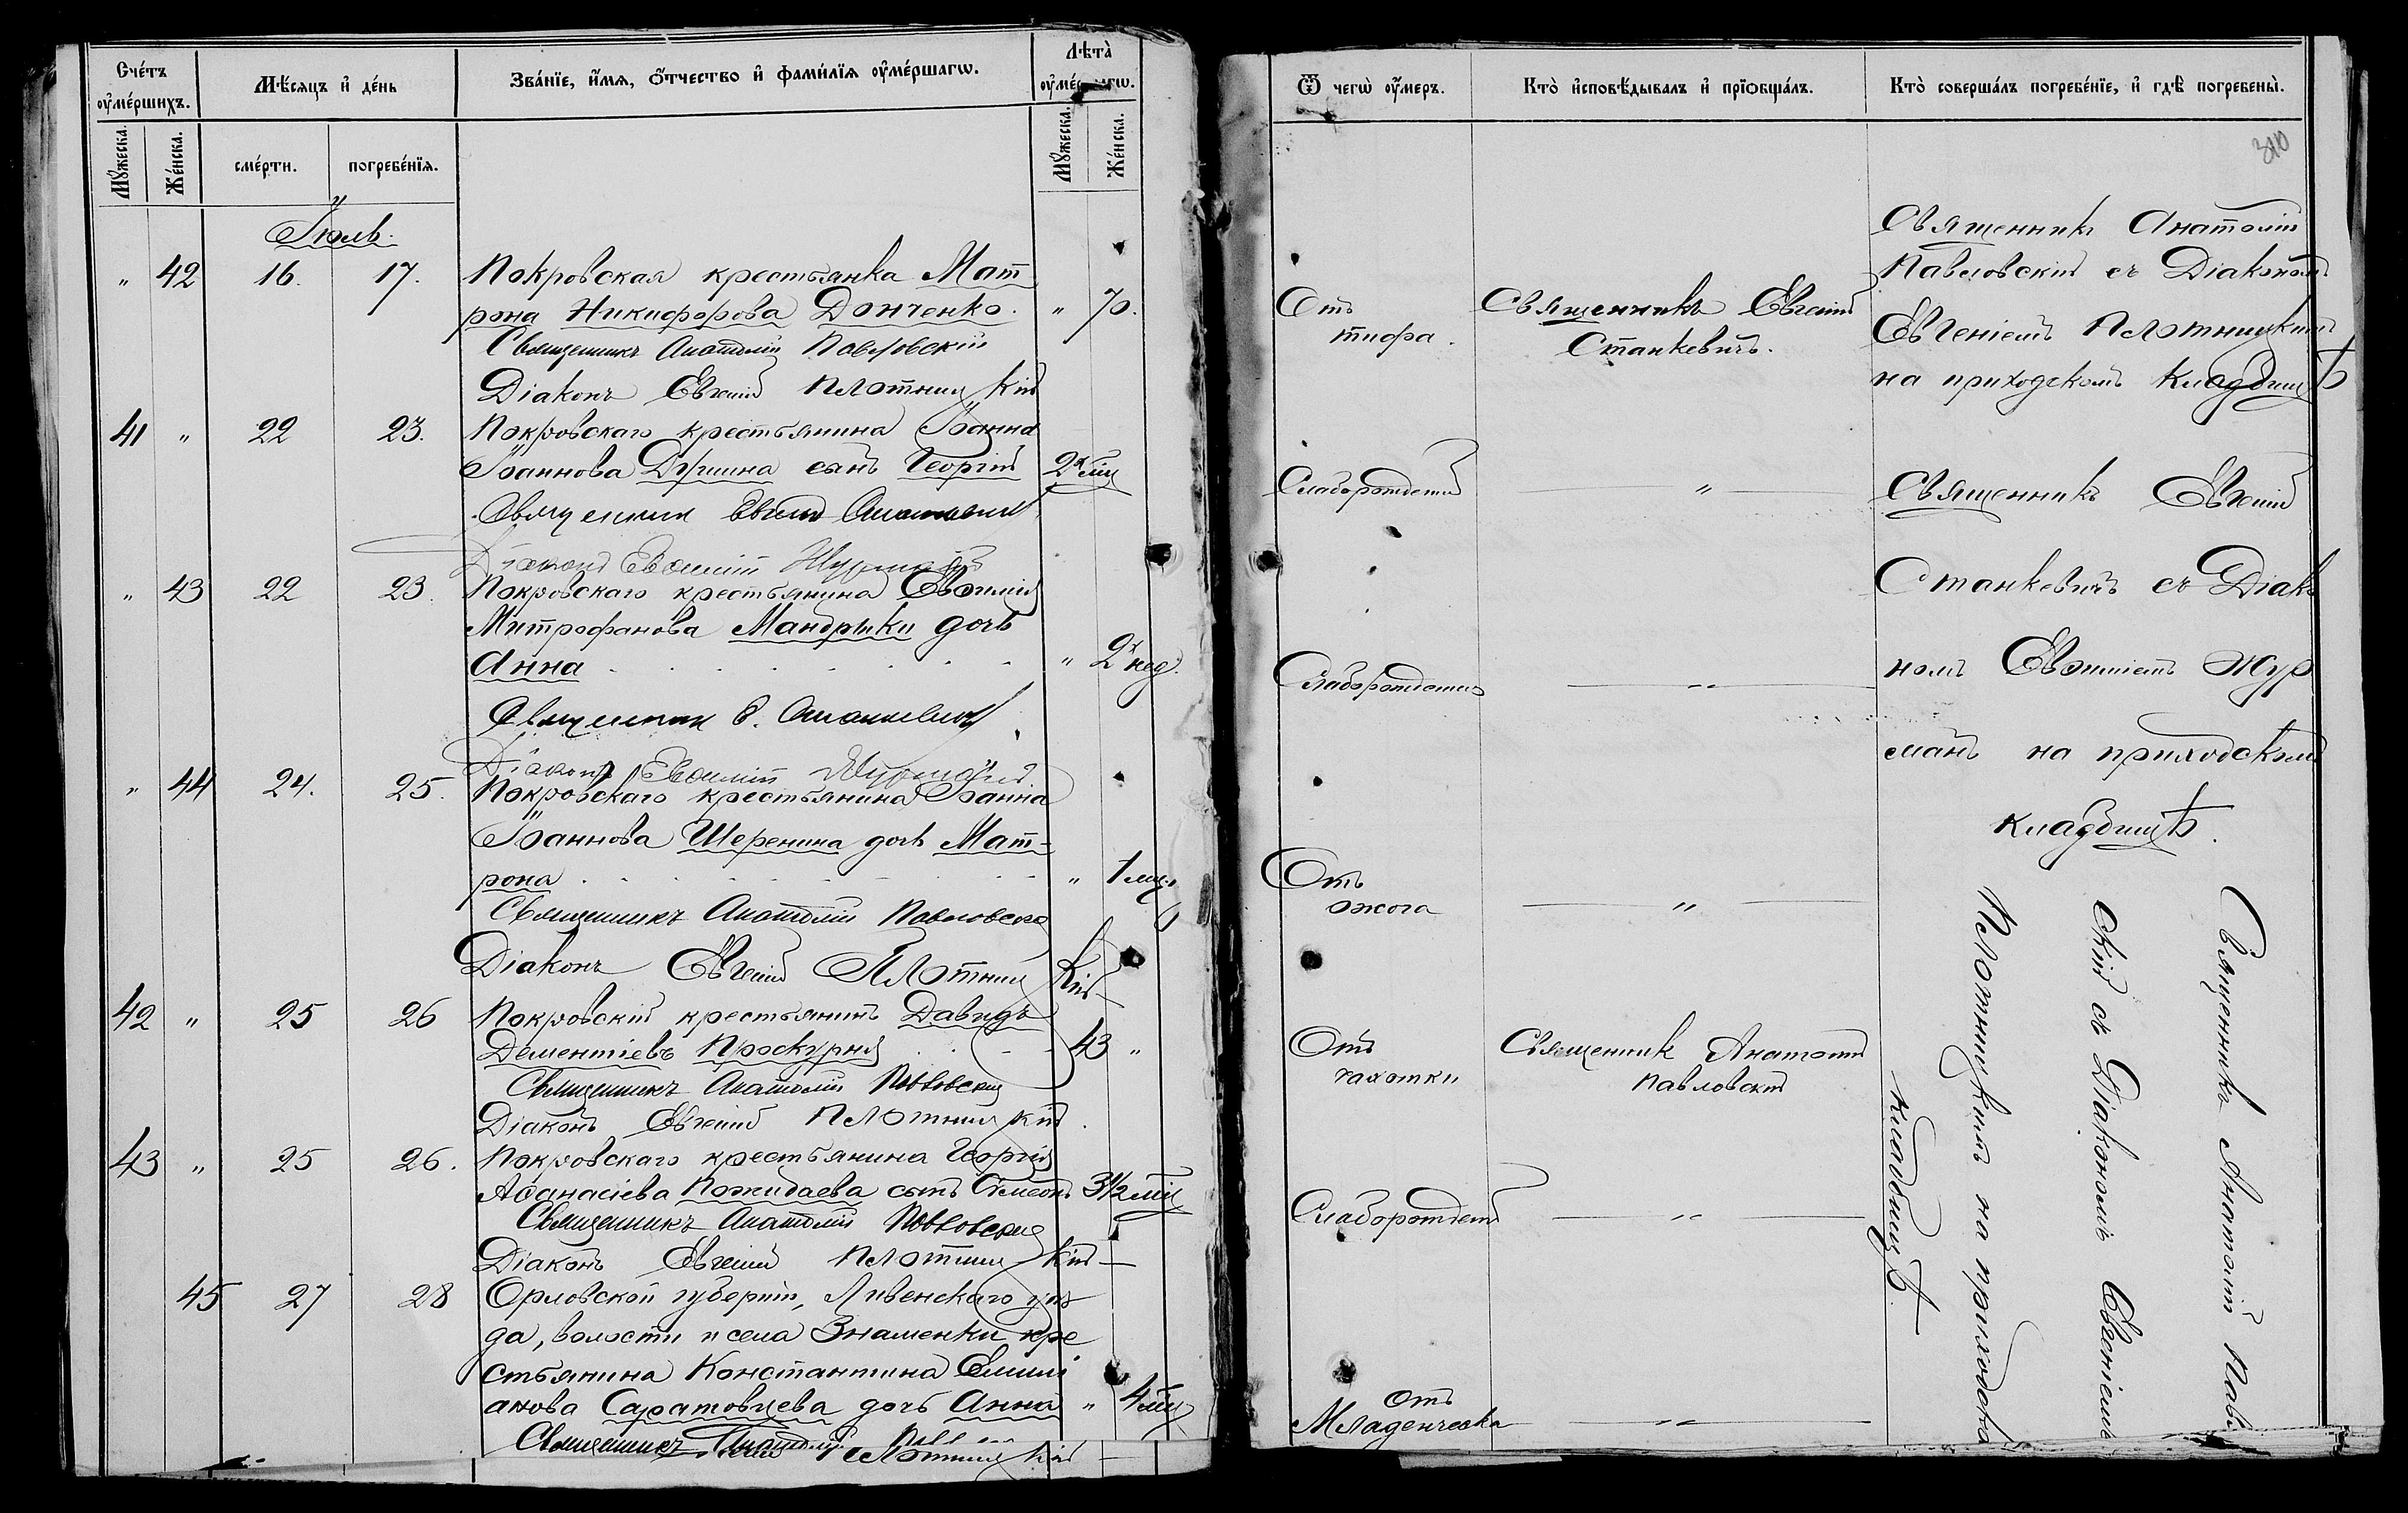 Счétъ ᲂу҆ме́ршихъ.
Мѣ́сяцъ и҆ де́нь
Зва́нїе, и҆́мя, ѻ҆́тчество и҆ фами́лїя ᲂу҆ме́ршагѡ.
Лѣ́та
Мꙋ́жеска.
Же́нска.
сме́рти.
погребе́нїя.
Мꙋ́жеска.
Же́нска.
Іюль.
" 42 16. 17. Покровская крестьянка Мат
рона Никифорова Донченко. " 70.
Священникъ Анатолій Павловскій
Діаконъ Евгеній Плотницкій
41 " 22 23. Покровскаго крестьянина Іоанна
Іоаннова сынъ Георгій 2 мц
Священник Евгеній Станкевич
Діаконъ Евѳимій
" 43 22 23. Покровскаго крестьянина Евѳимія
Митрофанова Мандрыки дочь
Анна " 2 нед.
Священник Е. Станкевич
Діаконъ Евѳимій
" 44 24. 25. Покровскаго крестьянина Іоанна
Іоаннова Шеренина дочь Мат-
рона " 1 мц.
Священникъ Анатолій Павловскій
Діаконъ Евгеній Плотницкій
42 " 25 26 Покровскій крестьянинъ Давидъ
Дементіевъ Проскурня 43 "
Священникъ Анатолій Павловскій
Діаконъ Евгеній Плотницкій
43 " 25 26. Покровскаго крестьянина Георгія
Аѳанасіева Пожидаева сынъ Сѵмеонъ 3½ мц
Священникъ Анатолій Павловскій
Діаконъ Евгеній Плотницкій
45 27 28 Орловской губерніи, Ливенскаго уѣз
да, волости и села Знаменки кре
стьянина Константина Емилі
анова Саратовцева дочь Анна " 4 мц
Священникъ Анатолій
Плотницкій
Ѿ чегѡ̀ ᲂу҆́меръ.
Кто̀ и҆сповѣ́дывалъ и҆ прїѻбща́лъ.
Кто̀ соверша́лъ погребе́нїе, и҆ гдѣ̀ погребены̀.
310
Отъ
тифа.
Священникъ Евгеній
Станкевичъ.
Священникъ Анатолій
Павловскій съ Діакономъ
Евгеніемъ Плотницкимъ
на приходскомъ кладбищѣ
Слаборожденій "
Священникъ Евгеній
Станкевичъ съ Діако
номъ Евѳиміемъ Жур
маномъ на приходскомъ
кладбищѣ.
Слаборожденія "
Отъ
ожога "
Отъ
чахотки
Священник Анатолій
Павловскій
Слаборожденій "
Отъ
Младенческа "
Священникъ Анатолій Павлов
скій съ Діакономъ Евгеніемъ
Плотницкимъ на приходском
кладбищѣ.